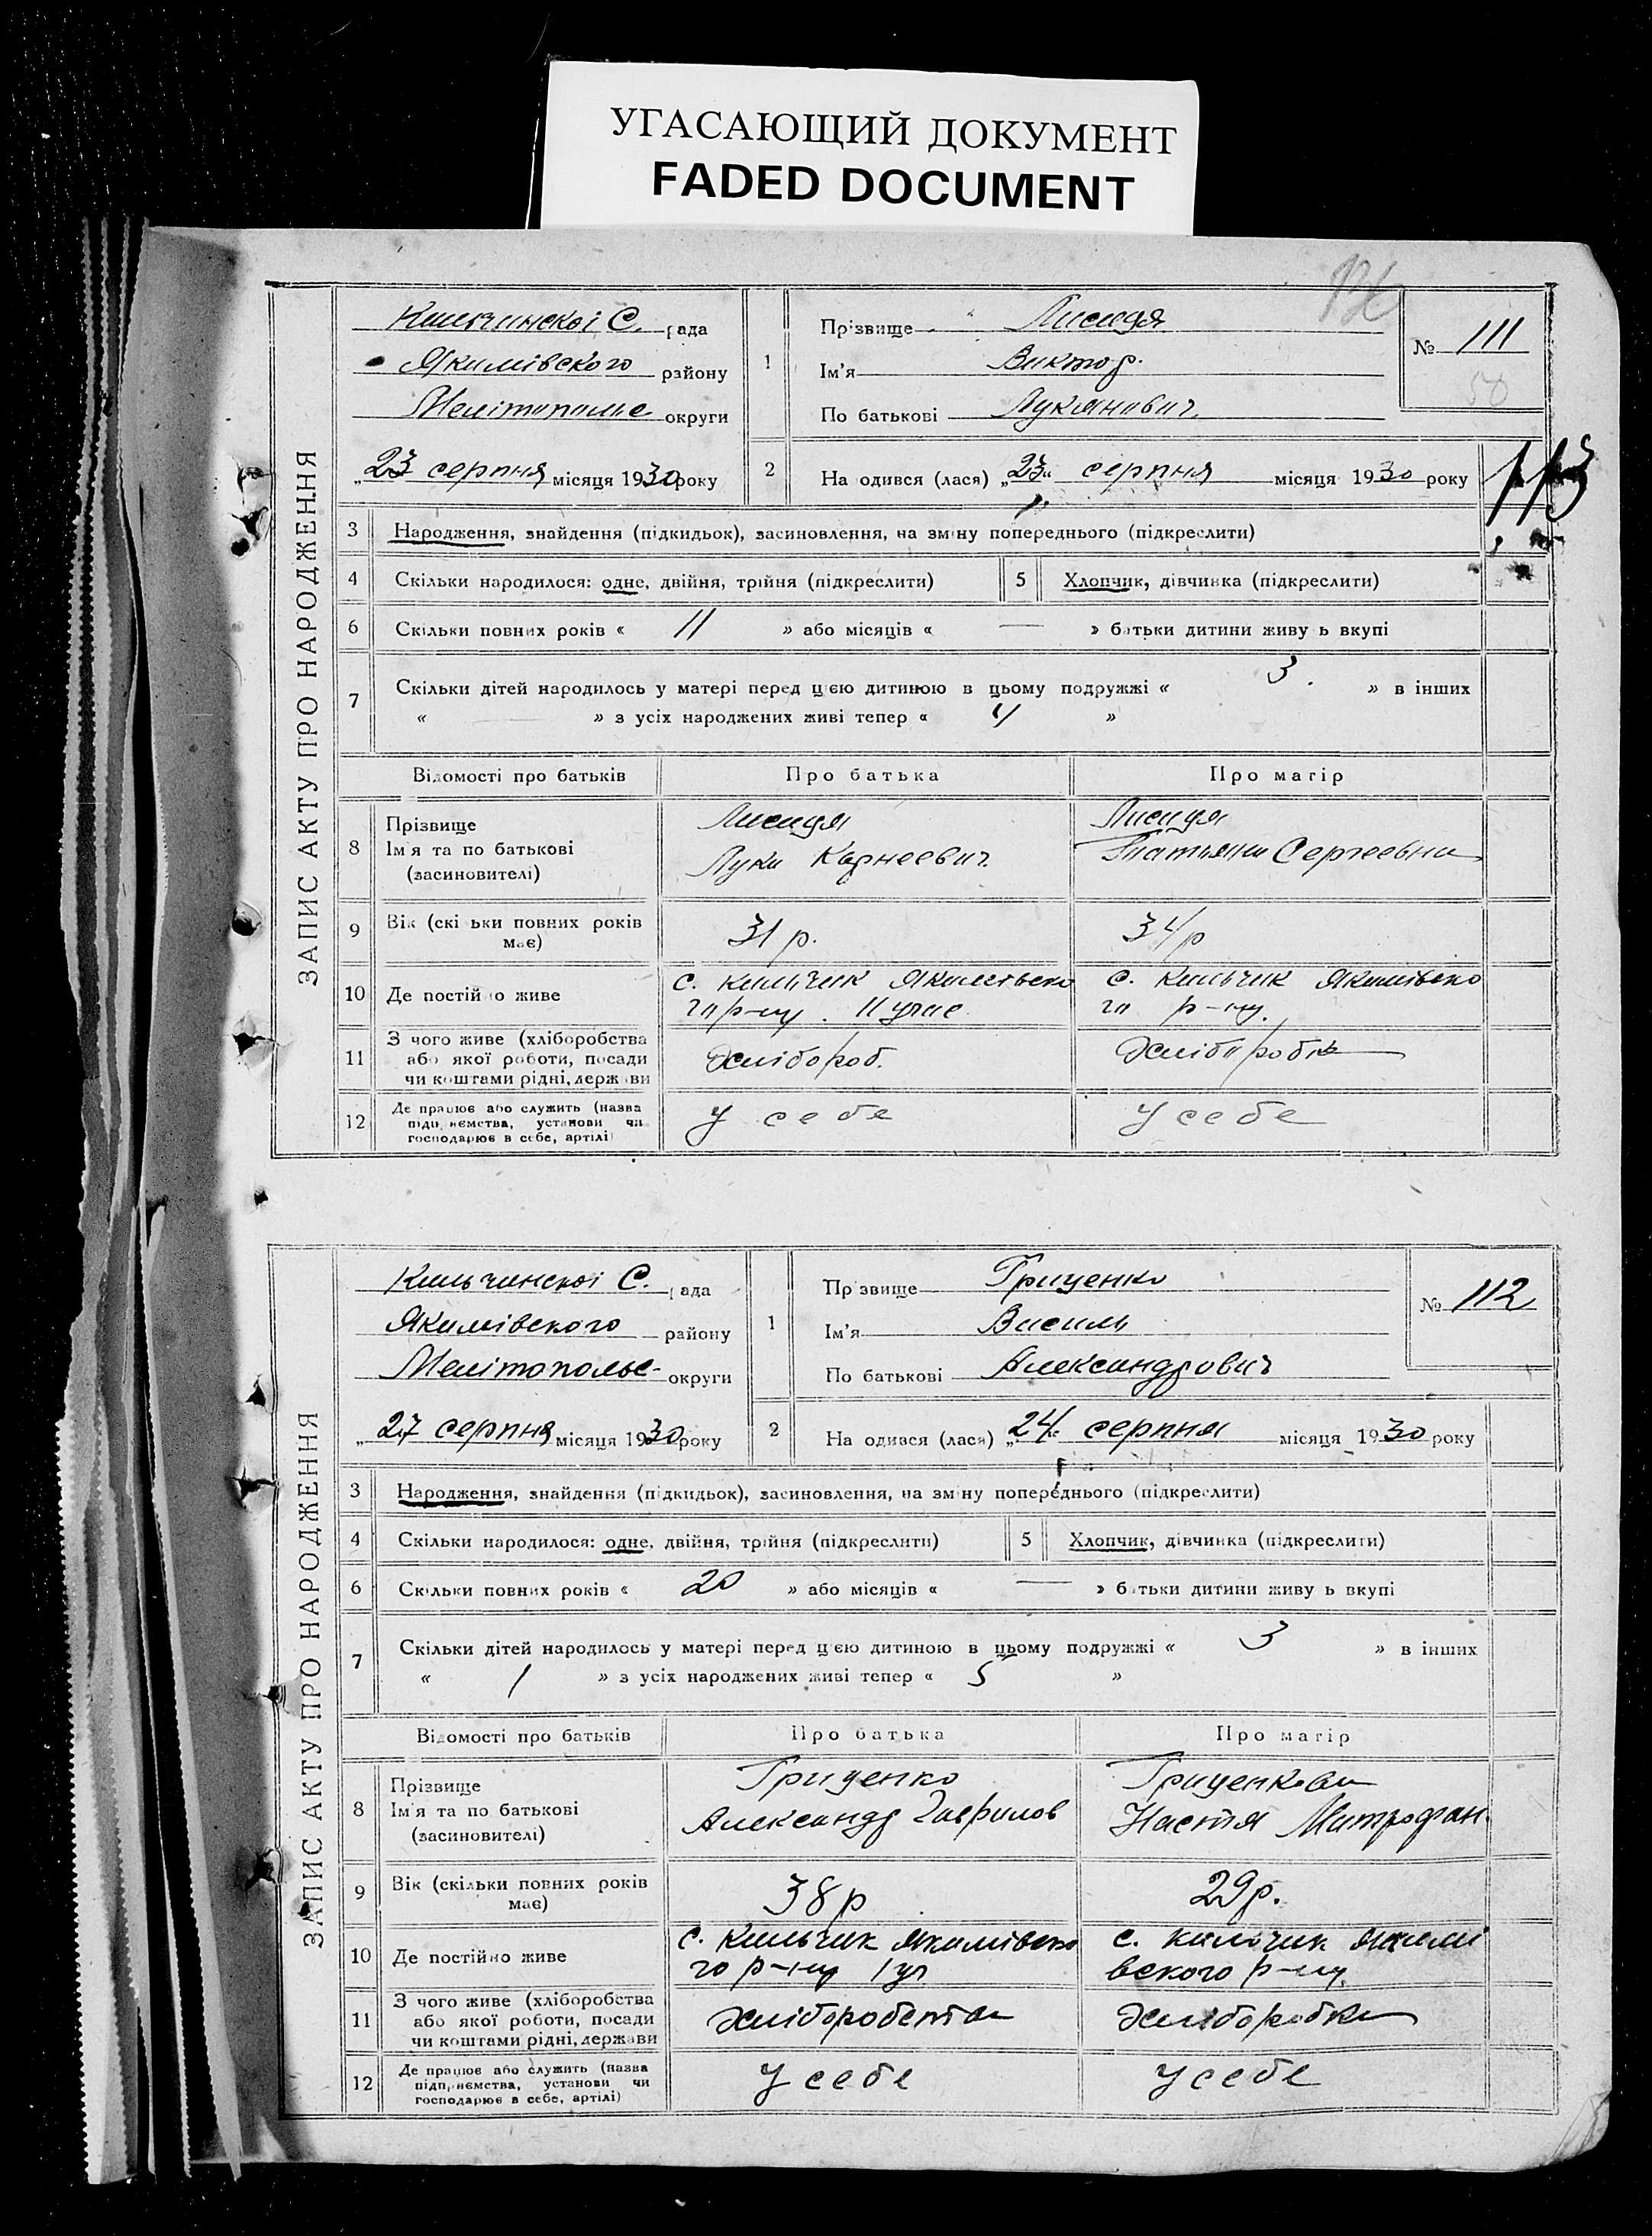 УГАСАЮЩИЙ ДОКУМЕНТ
FADED DOCUMENT
ЗАПИС АКТУ ПРО НАРОДЖЕННЯ
Кильчинскоі С. рада
Якимівского району
Мелітополье округи
„23 серпня місяця 1930 року
1 Прізвище Лисиця
Ім'я Виктор.
По батькові Лукянович
№ 111
50
2 На одився (лася) „23“ серпня місяця 1930 року
113
3 Народження, знайдення (підкидьок), засиновлення, на зміну попереднього (підкреслити)
4 Скільки народилося: одне, двійня, трійня (підкреслити) 5 Хлопчик, дівчинка (підкреслити)
6 Скільки повних років « 11 » або місяців « — » батьки дитини живу ь вкупі
7 Скільки дітей народилось у матері перед цією дитиною в цьому подружжі « 3. » в інших
« — » з усіх народжених живі тепер « 4 »
Відомості про батьків Про батька Про матір
8 Прізвище Лисиця Лисиця
Ім'я та по батькові Лука Корнеевич Татьяна Сергеевна
(засиновителі)
9 Вік (скі ьки повних років 31 р. 34 р
має)
10 Де постійно живе с. Кильчик Якимівско с. Кильчик Якимівско
го р-ну. II учас го р-ну.
11 З чого живе (хліборобства Хлібороб. Хліборобка
або якої роботи, посади
чи коштами рідні, держави
12 Де працює або служить (назва у себе у себе
підприємства, установи чи
господарює в себе, артілі)
ЗАПИС АКТУ ПРО НАРОДЖЕННЯ
Кильчинскоі С. рада
Якимівского району
Мелітополье- округи
„27 серпня місяця 1930 року
1 Прізвище Гриценко
Ім'я Василь
По батькові Александрович
№ 112
2 На одився (лася) „24“ серпня місяця 1930 року
3 Народження, знайдення (підкидьок), засиновлення, на зміну попереднього (підкреслити)
4 Скільки народилося: одне, двійня, трійня (підкреслити) 5 Хлопчик, дівчинка (підкреслити)
6 Скільки повних років « 20 » або місяців « — » батьки дитини живу ь вкупі
7 Скільки дітей народилось у матері перед цією дитиною в цьому подружжі « 3 » в інших
« 1 » з усіх народжених живі тепер « 5 »
Відомості про батьків Про батька Про матір
8 Прізвище Гриценко Гриценкова
Ім'я та по батькові Александр Гаврилов Настя Митрофан.
(засиновителі)
9 Вік (скільки повних років 38 р 29 р.
має)
10 Де постійно живе с. Кильчик Якимівско с. Кильчик Якимі
го р-ну 1 уч вского р-ну.
11 З чого живе (хліборобства Хліборобста Хлібороbка
або якої роботи, посади
чи коштами рідні, держави
12 Де працює або служить (назва у себе у себе
підприємства, установи чи
господарює в себе, артілі)